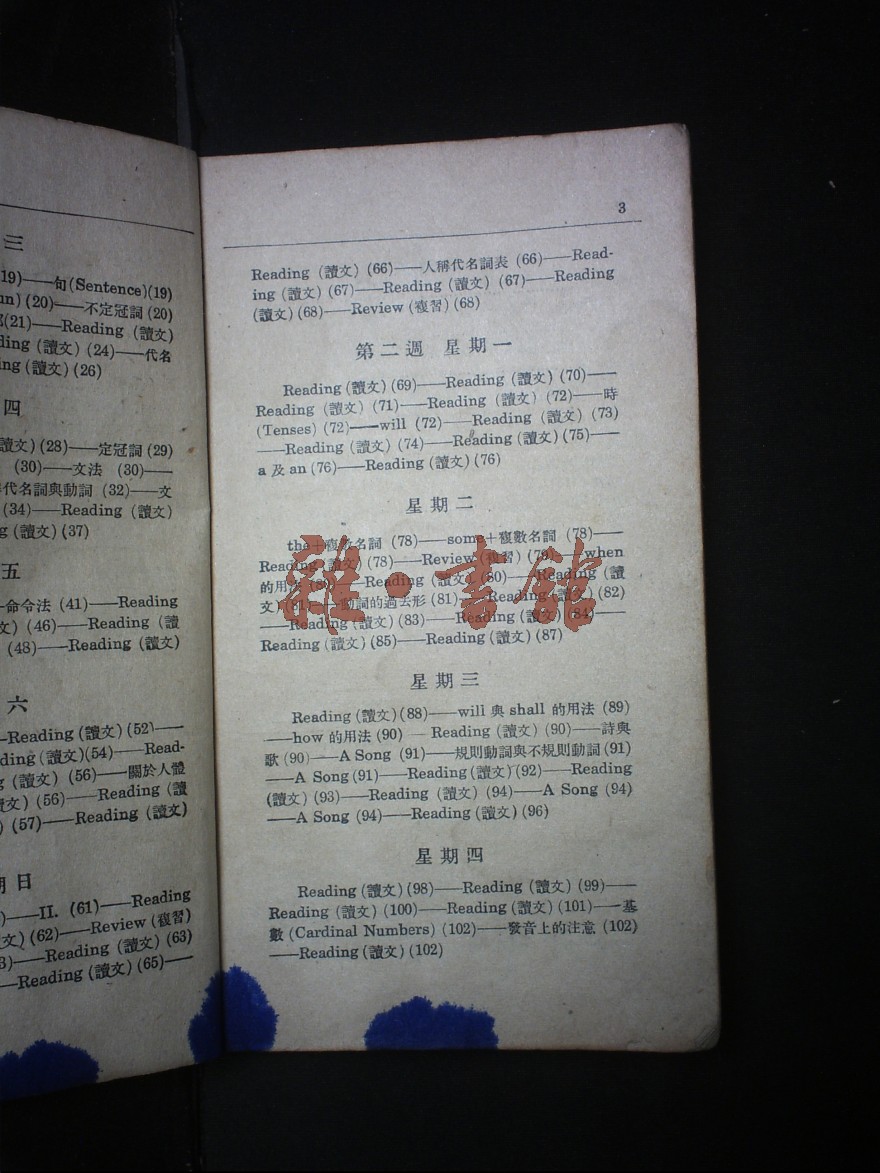 三
19)——句(Sentence)(19)
un) (20)——不定冠詞 (20)
(21)——Reading (讀文)
ding (讀文) (24)——代名
ng (讀文) (26)
四
讀文) (28)——定冠詞 (29)
(30)——文法 (30)——
代名詞與動詞 (32)——文
(34)——Reading (讀文)
g (讀文) (37)
五
命令法 (41)——Reading
文) (46)——Reading (讀
(48)——Reading (讀文)
六
—Reading (讀文) (52)——
ding (讀文)(54)——Read-
g (讀文) (56)——關於人體
讀文) (56)——Reading (讀
) (57)——Reading (讀文)
期日
)——II. (61)——Reading
文) (62)——Review (複習)
3)——Reading (讀文) (63)
—Reading (讀文) (65)——
3
Reading (讀文) (66)——人稱代名詞表 (66)——Read-
ing (讀文) (67)——Reading (讀文) (67)——Reading
(讀文) (68)——Review (複習) (68)
第二週 星期一
Reading (讀文) (69)——Reading (讀文) (70)——
Reading (讀文) (71)——Reading (讀文) (72)——時
(Tenses) (72)——will (72)——Reading (讀文) (73)
——Reading (讀文) (74)——Reading (讀文) (75)——
a 及 an (76)——Reading (讀文) (76)
星期二
the+複數名詞 (78)——some+複數名詞 (78)——
Reading (讀文) (78)——Review (複習) (79)——when
的用法 (80)——Reading (讀文) (80)——Reading (讀
文) (81)——動詞的過去形 (81)——Reading (讀文) (82)
——Reading (讀文) (83)——Reading (讀文) (84)——
Reading (讀文) (85)——Reading (讀文) (87)
雜·書館
星期三
Reading (讀文) (88)——will 與 shall 的用法 (89)
——how 的用法 (90)——Reading (讀文) (90)——詩與
歌 (90)——A Song (91)——規則動詞與不規則動詞 (91)
——A Song (91)——Reading (讀文) (92)——Reading
(讀文) (93)——Reading (讀文) (94)——A Song (94)
——A Song (94)——Reading (讀文) (96)
星期四
Reading (讀文) (98)——Reading (讀文) (99)——
Reading (讀文) (100)——Reading (讀文) (101)——基
數 (Cardinal Numbers) (102)——發音上的注意 (102)
——Reading (讀文) (102)